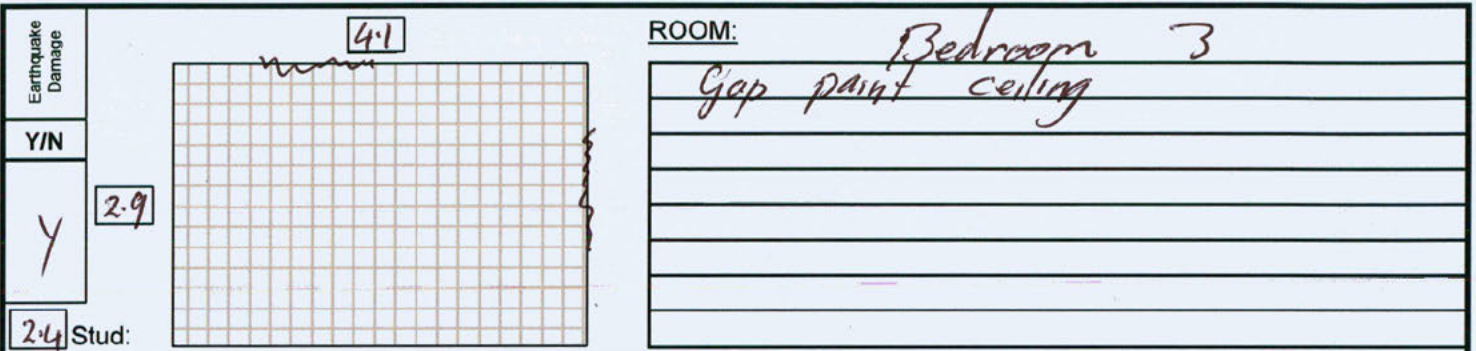 Earthquake
Damage
Y/N
Y
2.4 Stud:
2.9
4.1
ROOM: Bedroom 3
Gap paint ceiling